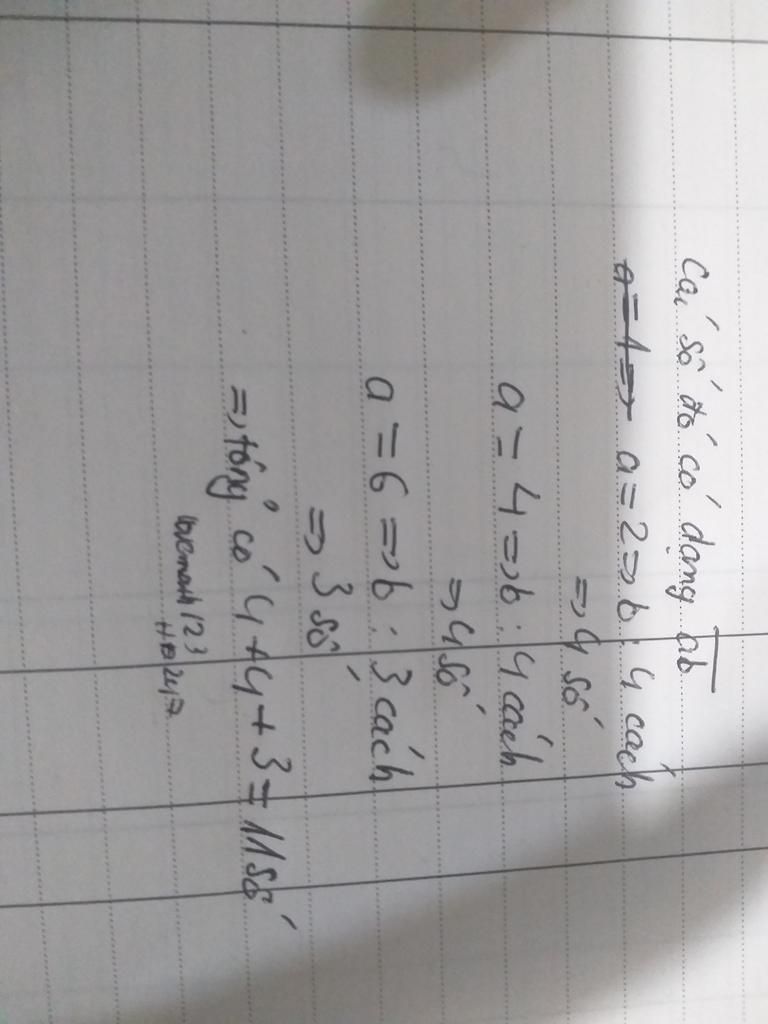 Các số đó có dạng ab
a=1=> a=2=>b: 4 cách
=> 4 số
a=4=>b: 4 cách
=> 4 số
a=6=>b: 3 cách
=> 3 số
=> tổng có 4+4+3=11 số
lovemath123